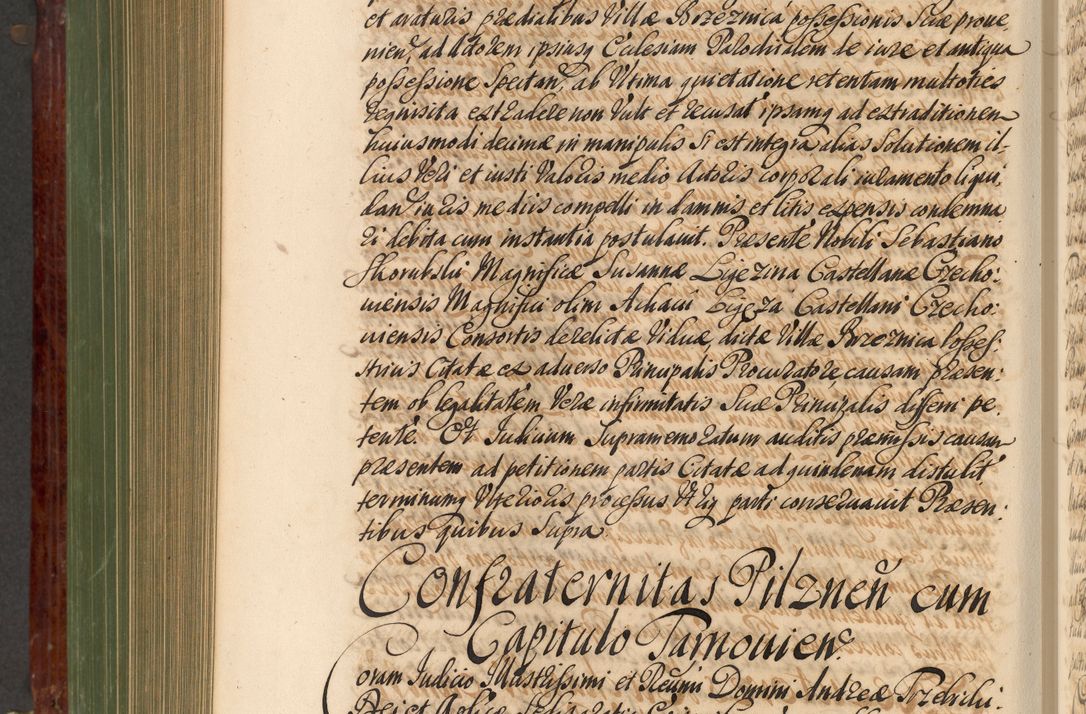 et araturis prædialibus Villæ Brzeznica possessionis suæ prove
nien̄, ad Actorem ipsiusq Ecclesiam Parochialem de iure et antiqua
possessione spectan̄, ab Ultima quietatione retentam multoties
requisita extradere non Vult et recusat ipsamq ad extraditionem
huiusmodi decimæ in manipulis si est integra alias solutionem il-
lius Veri et iusti Valoris medio Actoris corporali iuramento liqui,
dan̄ iuris mediis compelli in damnis et litis expensis condemna
ri debita cum instantia postulavit. Præsente Nobili Sebastiano
Skorubski Magnificæ Susannæ Ligęzina Castellanæ Czecho:
viensis Magnifici olim Achacii Ligęza Castellani Czecho:
viensis Consortis derelictæ Viduæ, dictæ Villæ Brzeznica Posses:
tricis Citatæ ex adverso Principalis Procuratore, causam præsen:
tem ob legalitatem Veræ infirmitatis suæ Principalis differri pe:
tente. Et Iudicium supramemoratum auditis præmissis causam
præsentem ad petitionem partis Citatæ ad quindenam distulit
terminumq Ulterioris processus Utriq parti conservavit Præsen:
tibus quibus supra.
Confraternitas Pilznen̄ cum
Capitulo Tarnovien̄.
Coram Iudicio Illustrissimi et R̄ndmi Domini Andreæ Trzebicki
Dei et